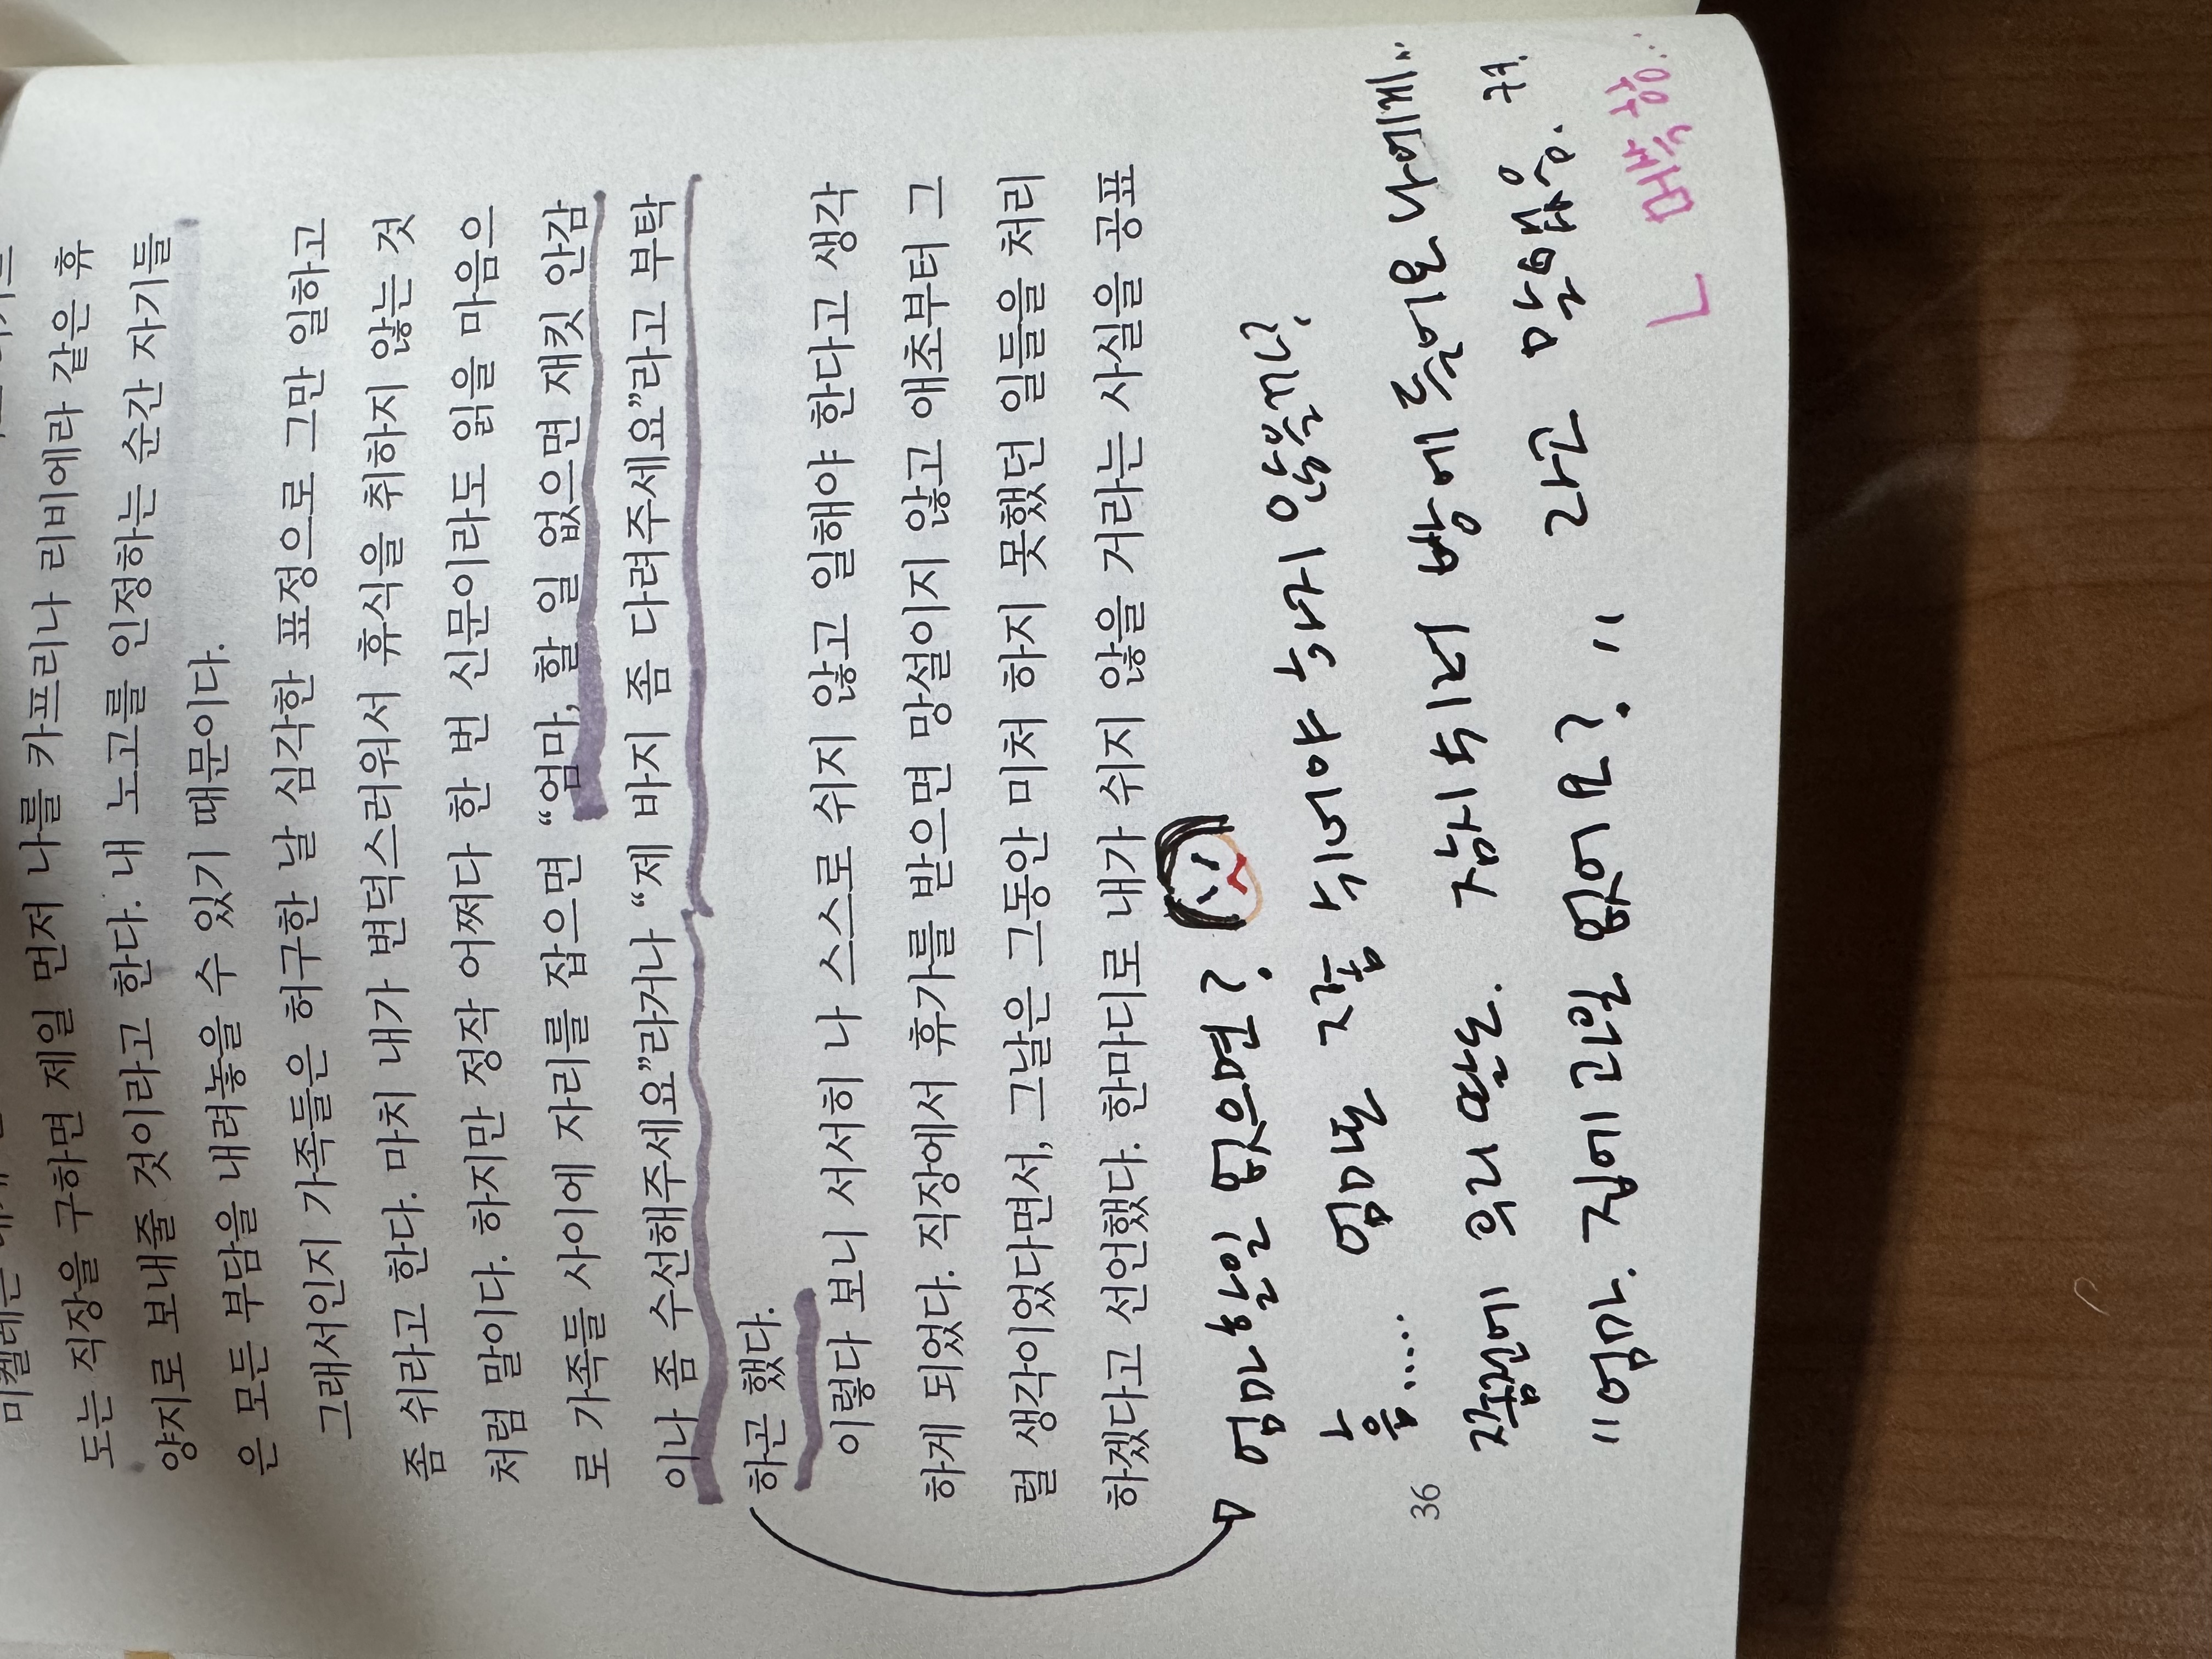 도는 직장을 구하면 제일 먼저 나를 카프리나 리비에라 같은 휴
양지로 보내줄 것이라고 한다. 내 노고를 인정하는 순간 자기들
은 모든 부담을 내려놓을 수 있기 때문이다.
그래서인지 가족들은 허구한 날 심각한 표정으로 그만 일하고
좀 쉬라고 한다. 마치 내가 변덕스러워서 휴식을 취하지 않는 것
처럼 말이다. 하지만 정작 어쩌다 한 번 신문이라도 읽을 마음으
로 가족들 사이에 자리를 잡으면 “엄마, 할 일 없으면 재킷 안감
이나 좀 수선해주세요”라거나 “제 바지 좀 다려주세요”라고 부탁
하곤 했다.
이렇다 보니 서서히 나 스스로 쉬지 않고 일해야 한다고 생각
하게 되었다. 직장에서 휴가를 받으면 망설이지 않고 애초부터 그
럴 생각이었다면서, 그날은 그동안 미처 하지 못했던 일들을 처리
하겠다고 선언했다. 한마디로 내가 쉬지 않을 거라는 사실을 공표
엄마 할일 없으면?
음..... 엄마도 좀 쉬어야 하지 않을까?
36
쫌전에 우리 딸도. 잠시 쉬러 방에 들어온 나에게..
"엄마. 집에 과일 없어요?" 라고 말했음. ㅋㅋ.